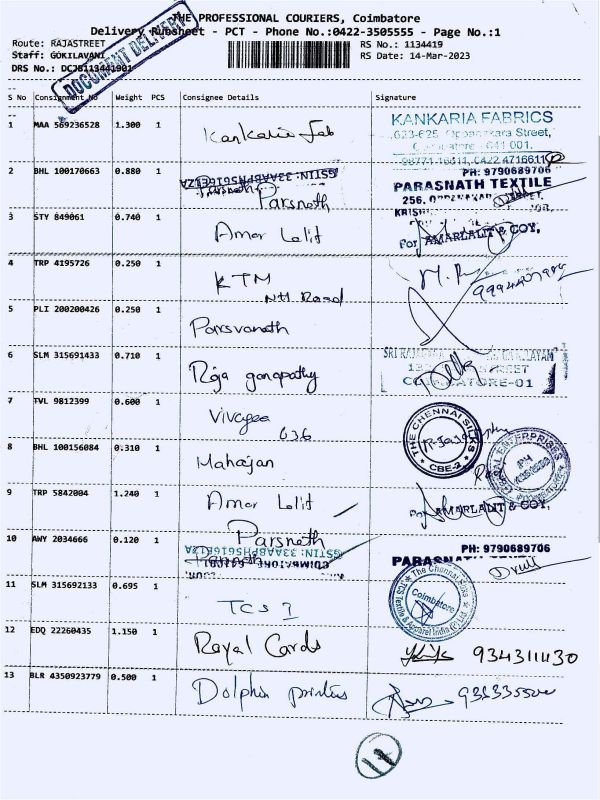 THE PROFESSIONAL COURIERS, Coimbatore
Delivery Runsheet - PCT - Phone No.:0422-3505555 - Page No.:1
Route: RAJASTREET RS No.: 1134419
Staff: GOKILAVANI RS Date: 14-Mar-2023
DRS No.: DCJB113441901
DOCUMENT DELIVERY
S No Consignment No Weight PCS Consignee Details Signature
1 MAA 569236528 1.300 1 Kankaria fab
KANKARIA FABRICS
623-625, Oppanakara Street,
Coimbatore - 641 001.
98771 16611, 0422 4716611
2 BHL 100170663 0.880 1 Parsnath
GSTIN: 33AABPH5616E1ZA
PH: 9790689706
PARASNATH TEXTILE
256,
3 STY 849061 0.740 1 Amar Lalit
For AMARLALIT & COY.
4 TRP 4195726 0.250 1 KTM
NH Road
5 PLI 200200426 0.250 1 Parsvanath
6 SLM 315691433 0.710 1 Raja ganapathy
STREET
COIMBATORE-01
7 TVL 9812399 0.600 1 Vivagaa
636
THE CHENNAI SILKS
CBE-2
8 BHL 100156084 0.310 1 Mahajan
ENTERPRISES
9 TRP 5842004 1.240 1 Amar Lalit
For AMARLALIT & COY.
10 AWY 2034666 0.120 1 Parsnath
COIMBATORE - 641001
PH: 9790689706
PARASNATH TEXTILE
11 SLM 315692133 0.695 1 TCS
The Chennai Silks
Coimbatore
TCS Textile & Apparel India (P) Ltd
12 EDQ 22260435 1.150 1 Royal Cards
9343111130
13 BLR 4350923779 0.500 1 Dolphin printers
11